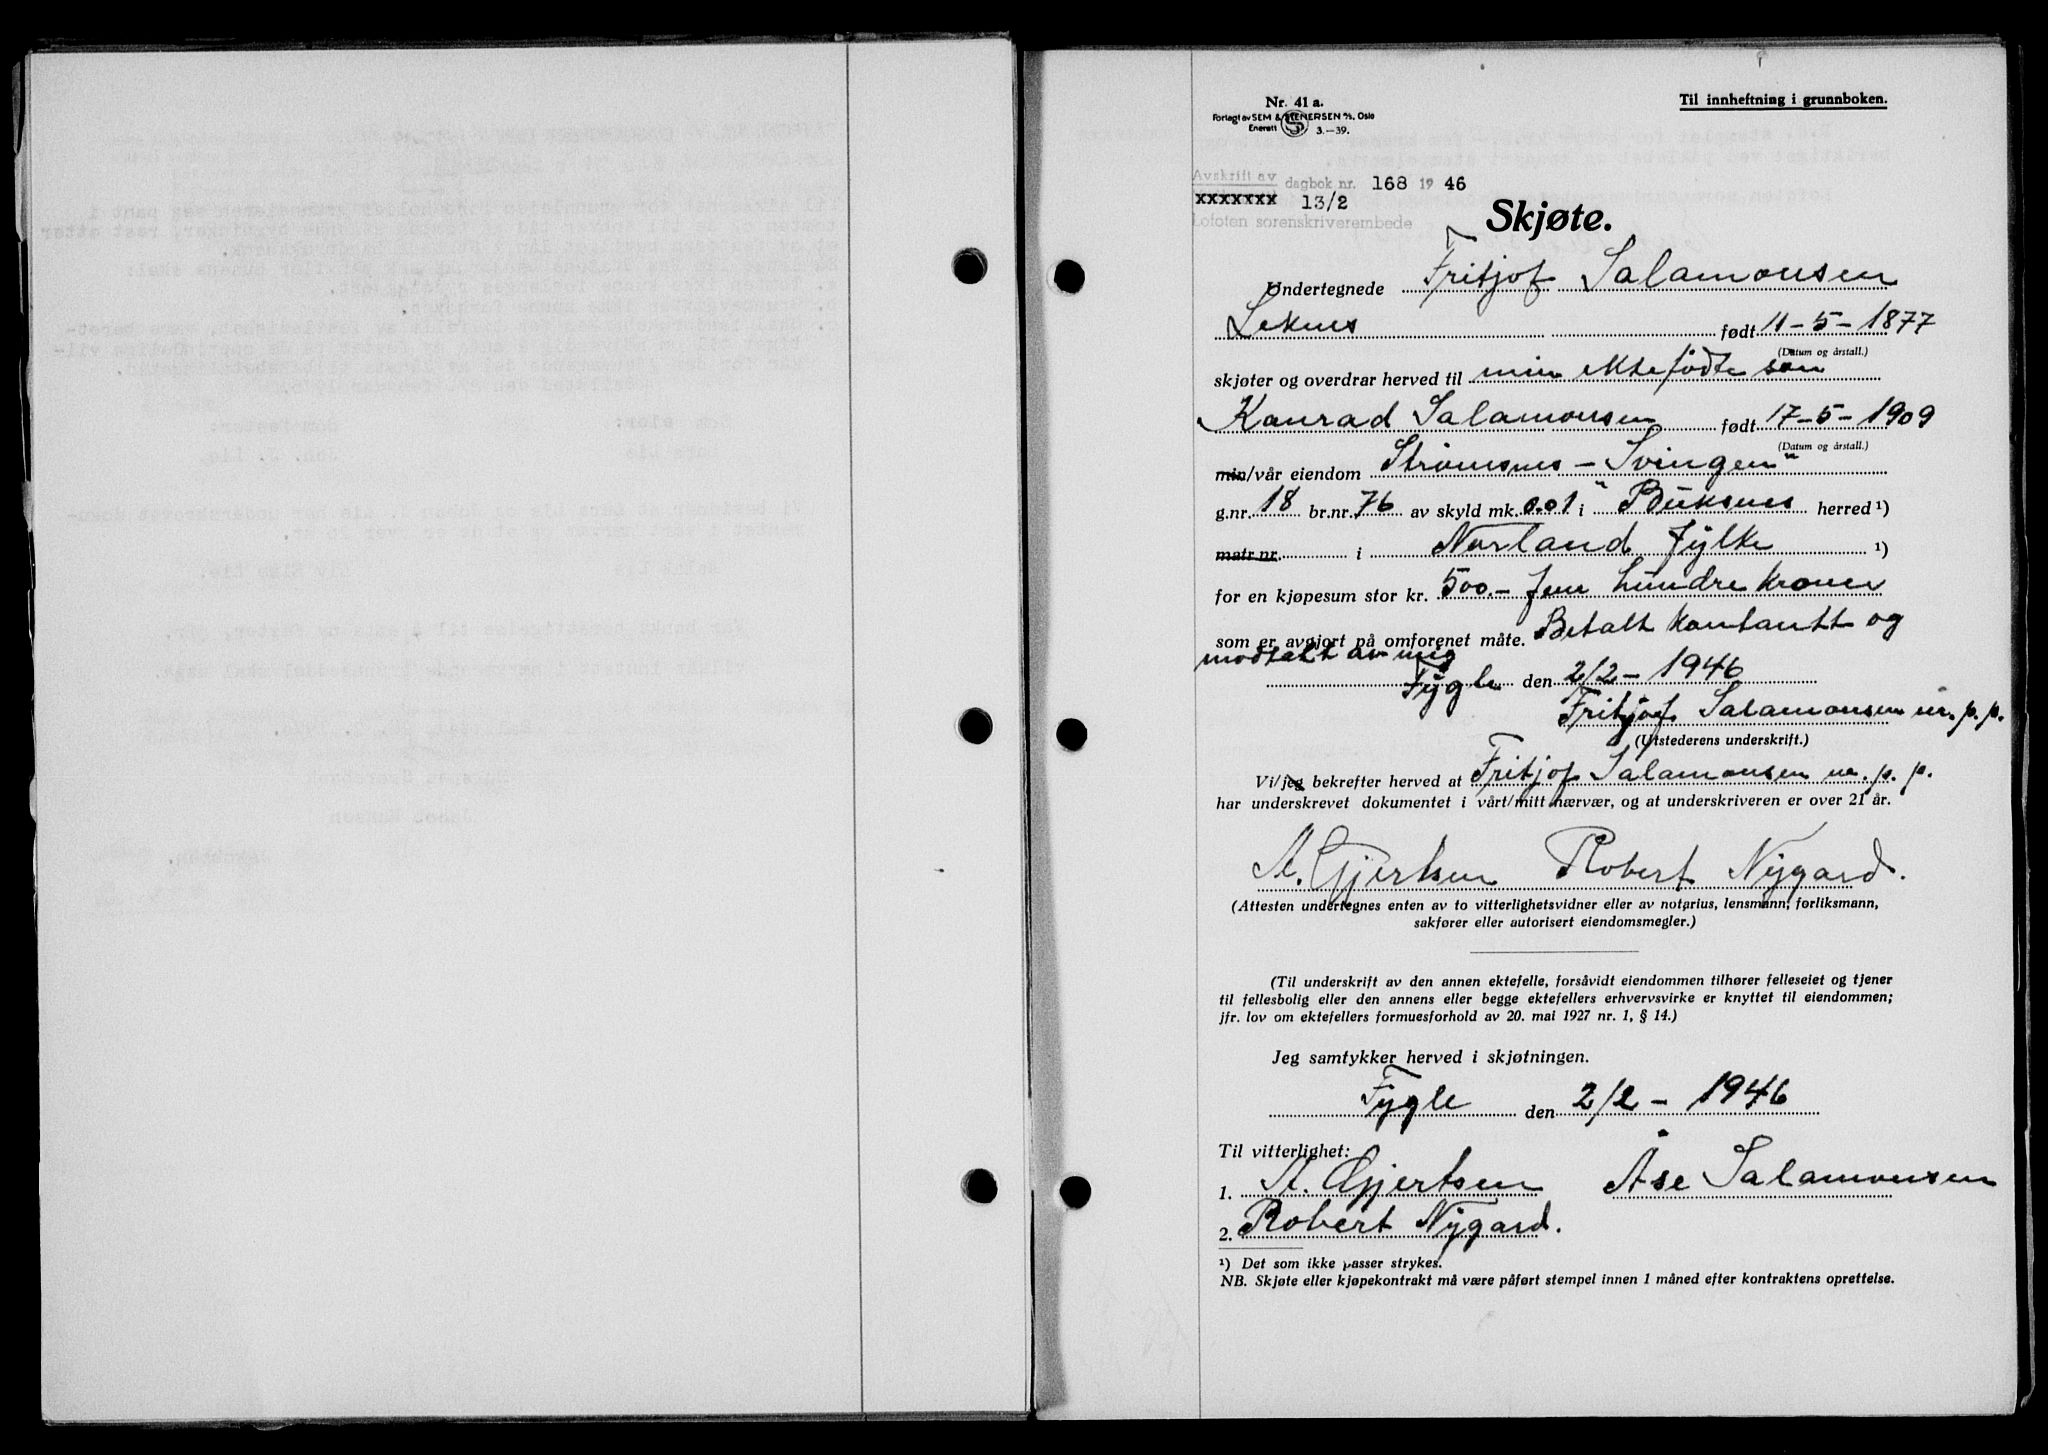 Nr. 41 a.
Til innheftning i grunnboken.
Forlagt av SEM & STENERSEN A/S, Oslo
Enerett 3.—39.
Avskrift av dagbok nr. 168 1946
xxxxxxx 13/2
Lofoten sorenskriverembede
Skjøte.
Undertegnede Fritjof Salamonsen
Leknes født 11-5-1877
(Datum og årstall.)
skjøter og overdrar herved til min ektefødte søn
Konrad Salamonsen født 17-5-1909
(Datum og årstall.)
min/vår eiendom Strømsnes - Svingen"
g.nr. 18 br.nr. 76 av skyld mk. 0.01 i " Buksnes herred ¹)
matr.nr. i Norland fylke ¹)
for en kjøpesum stor kr. 500.- fem hundre kroner
som er avgjort på omforenet måte. Betalt kontantt og
modtatt av mig
Fygle den 2/2 - 1946
Fritjof Salamonsen m. p. p.
(Utstederens underskrift.)
Vi/jeg bekrefter herved at Fritjof Salamonsen m. p. p.
har underskrevet dokumentet i vårt/mitt nærvær, og at underskriveren er over 21 år.
A. Gjertsen Robert Nygard.
(Attesten undertegnes enten av to vitterlighetsvidner eller av notarius, lensmann, forliksmann,
sakfører eller autorisert eiendomsmegler.)
(Til underskrift av den annen ektefelle, forsåvidt eiendommen tilhører felleseiet og tjener
til fellesbolig eller den annens eller begge ektefellers erhvervsvirke er knyttet til eiendommen;
jfr. lov om ektefellers formuesforhold av 20. mai 1927 nr. 1, § 14.)
Jeg samtykker herved i skjøtningen.
Fygle den 2/2 - 1946
Til vitterlighet:
1. A. Gjertsen Åse Salamonsen
2. Robert Nygard.
¹) Det som ikke passer strykes.
NB. Skjøte eller kjøpekontrakt må være påført stempel innen 1 måned efter kontraktens oprettelse.